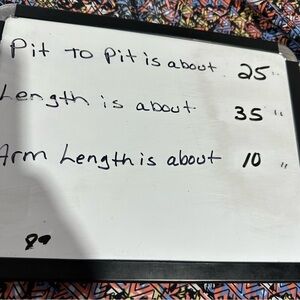 Pit To Pit is about 25"
Length is about 35"
Arm Length is about 10"